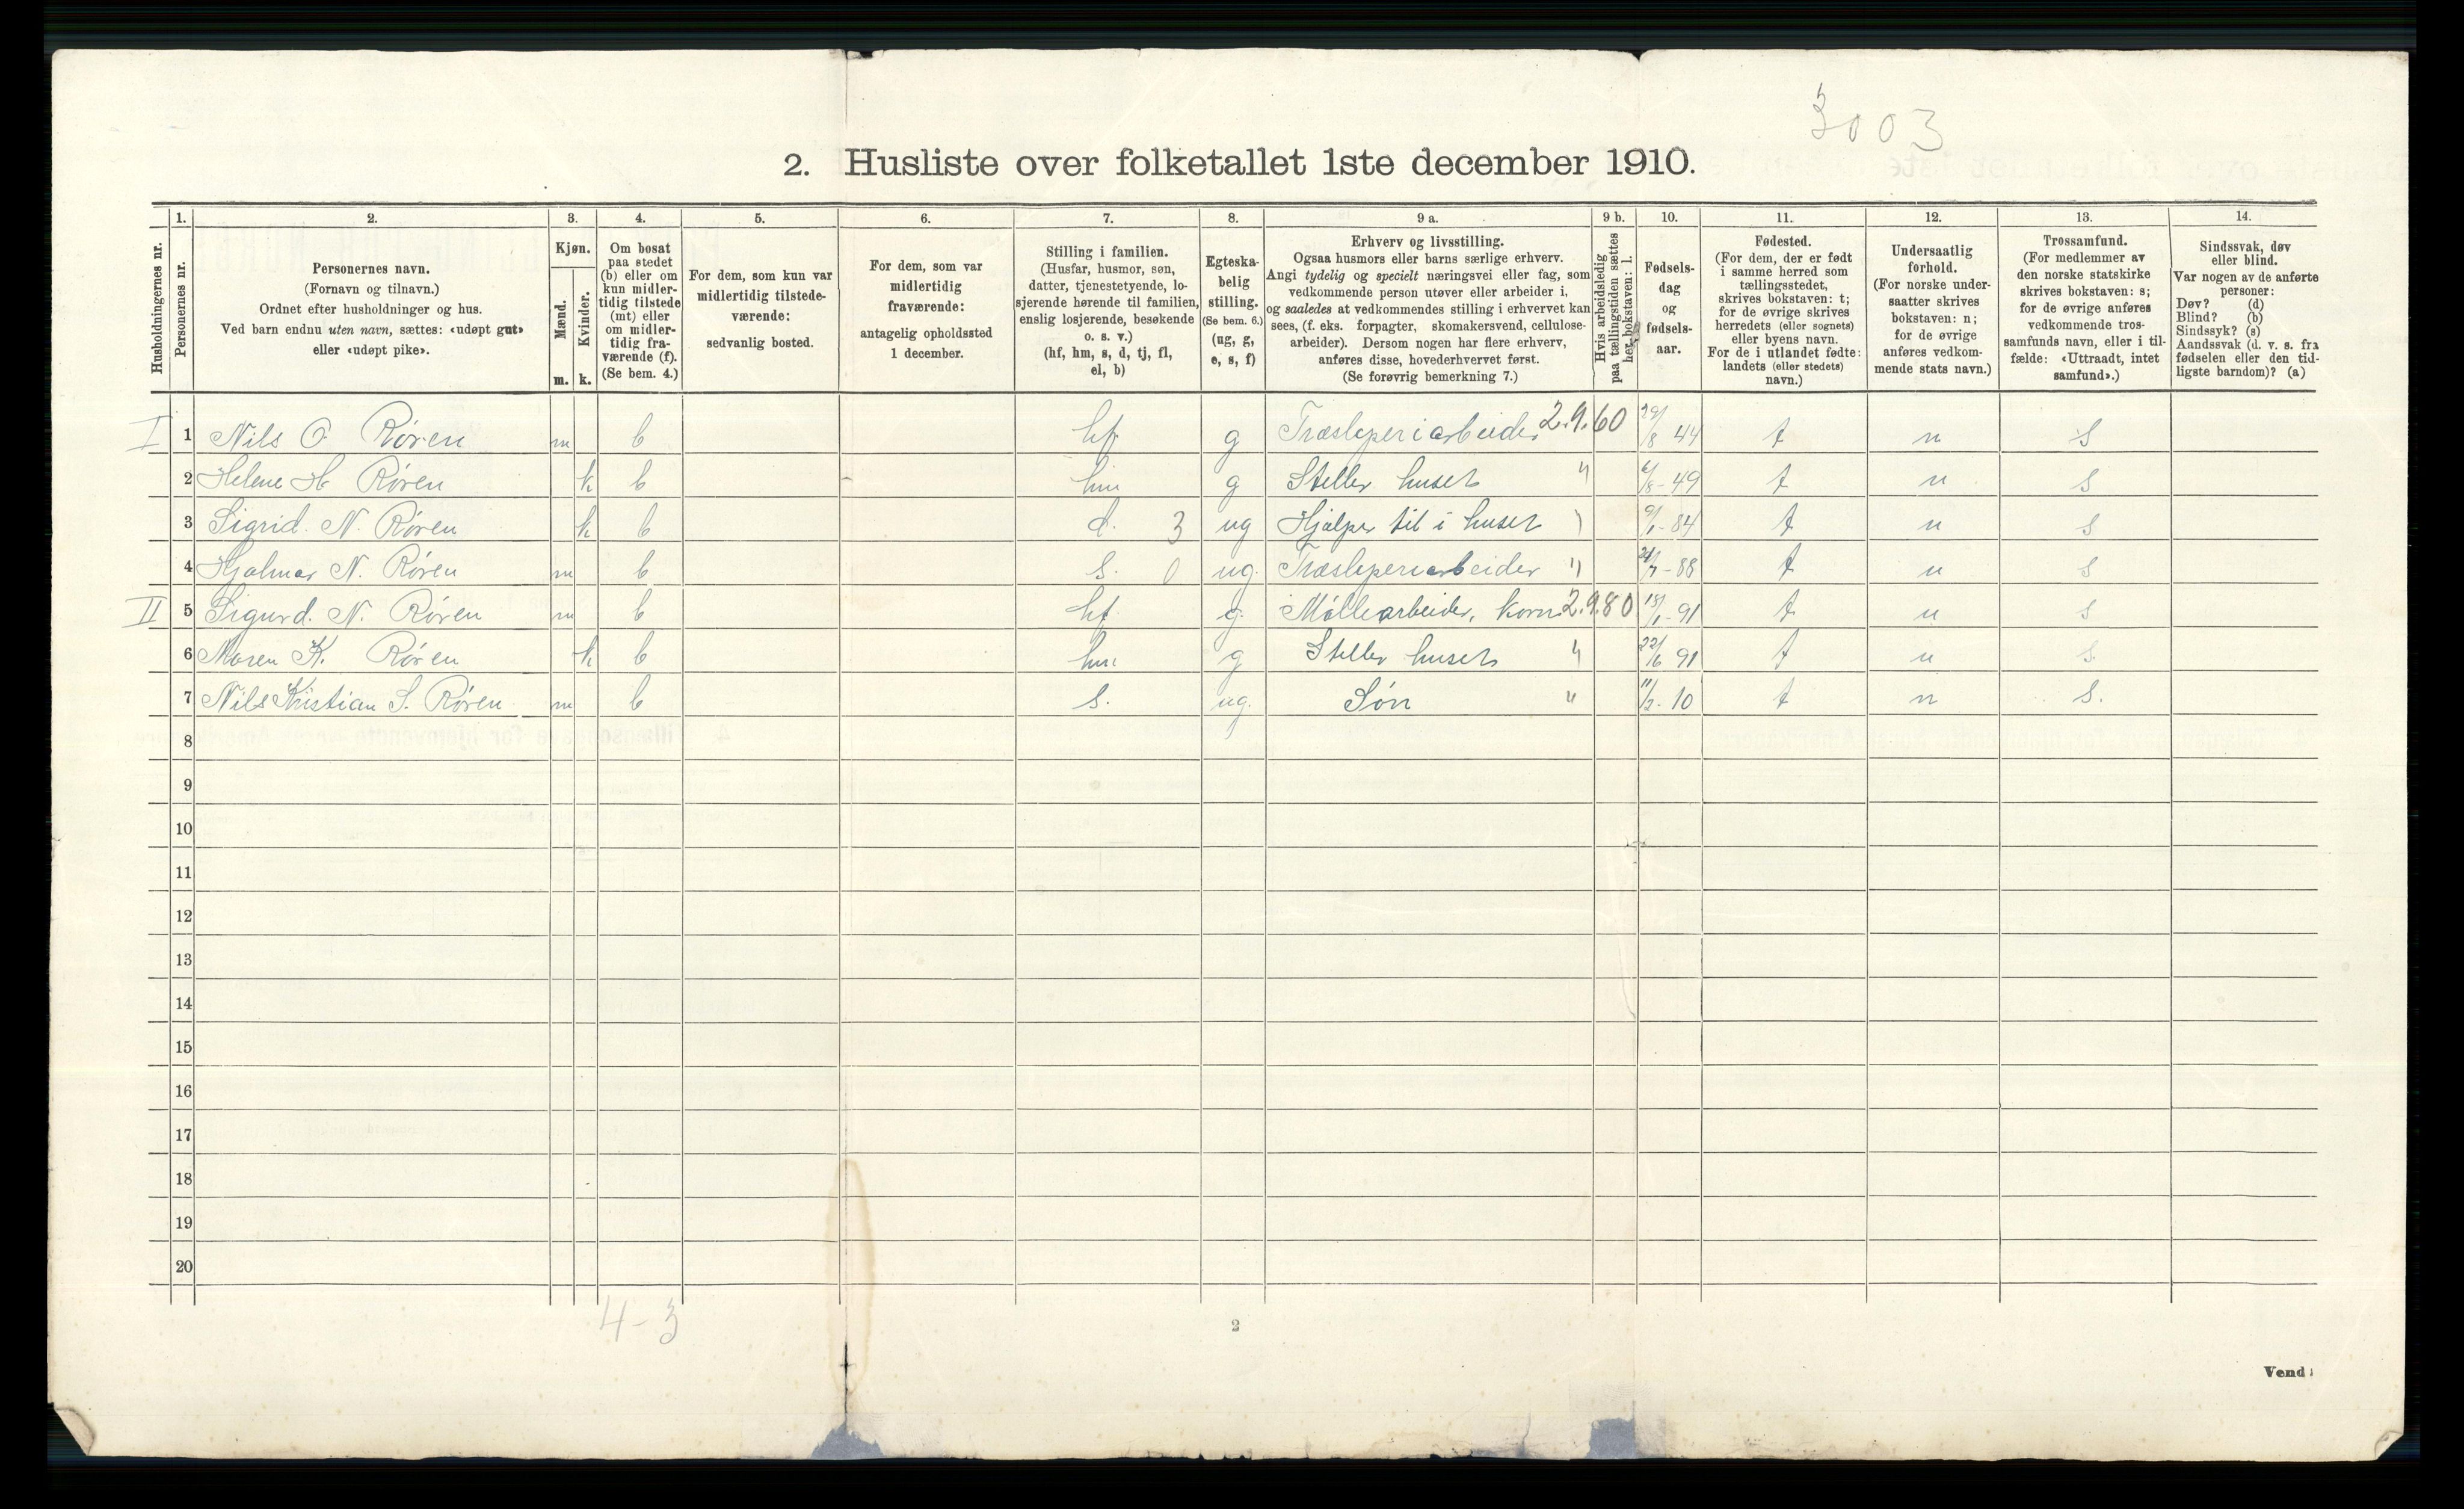 3003
2. Husliste over folketallet 1ste december 1910.
Husholdningernes nr.
1. Personernes nr.
2. Personernes navn.
(Fornavn og tilnavn.)
Ordnet efter husholdninger og hus.
Ved barn endnu uten navn, sættes: «udøpt gut»
eller «udøpt pike».
3. Kjøn.
Mænd. m.
Kvinder. k.
4. Om bosat
paa stedet
(b) eller om
kun midler-
tidig tilstede
(mt) eller
om midler-
tidig fra-
værende (f).
(Se bem. 4.)
5. For dem, som kun var
midlertidig tilstede-
værende:
sedvanlig bosted.
6. For dem, som var
midlertidig
fraværende:
antagelig opholdssted
1 december.
7. Stilling i familien.
(Husfar, husmor, søn,
datter, tjenestetyende, lo-
sjerende hørende til familien,
enslig losjerende, besøkende
o. s. v.)
(hf, hm, s, d, tj, fl,
el, b)
8. Egteska-
belig
stilling.
(Se bem. 6.)
(ug, g,
e, s, f)
9 a. Erhverv og livsstilling.
Ogsaa husmors eller barns særlige erhverv.
Angi tydelig og specielt næringsvei eller fag, som
vedkommende person utøver eller arbeider i,
og saaledes at vedkommendes stilling i erhvervet kan
sees, (f. eks. forpagter, skomakersvend, cellulose-
arbeider). Dersom nogen har flere erhverv,
anføres disse, hovederhvervet først.
(Se forøvrig bemerkning 7.)
9 b. Hvis arbeidsledig
paa tællingstiden sættes
her bokstaven: l.
10. Fødsels-
dag
og
fødsels-
aar.
11. Fødested.
(For dem, der er født
i samme herred som
tællingsstedet,
skrives bokstaven: t;
for de øvrige skrives
herredets (eller sognets)
eller byens navn.
For de i utlandet fødte:
landets (eller stedets)
navn.)
12. Undersaatlig
forhold.
(For norske under-
saatter skrives
bokstaven: n;
for de øvrige
anføres vedkom-
mende stats navn.)
13. Trossamfund.
(For medlemmer av
den norske statskirke
skrives bokstaven: s;
for de øvrige anføres
vedkommende tros-
samfunds navn, eller i til-
fælde: «Uttraadt, intet
samfund».)
14. Sindssvak, døv
eller blind.
Var nogen av de anførte
personer:
Døv? (d)
Blind? (b)
Sindssyk? (s)
Aandssvak (d. v. s. fra
fødselen eller den tid-
ligste barndom)? (a)
I 1 Nils O Røren m b hf g Træsliperiarbeider 2.9.60 29/8 44 t n s
2 Helene H Røren k b hm g Steller huset " 6/8-49 t n s
3 Sigrid. N. Røren k b d. 3 ug Hjælper til i huset " 9/1-84 t n s
4 Hjalmar N. Røren m b s. 0 ug. Træsliperiarbeider " 21/7-88 t n s
II 5 Sigurd. N. Røren m b hf g. Møllearbeider, korn 2.9.80 18/1-91 t n s
6 Maren K. Røren k b hm g Steller huset " 22/6 91 t n s
7 Nils Kristian S. Røren m b s. ug. Søn " 11/2-10 t n s.
8
9
10
11
12
13
14
15
16
17
18
19
20
4-3
2
Vend!